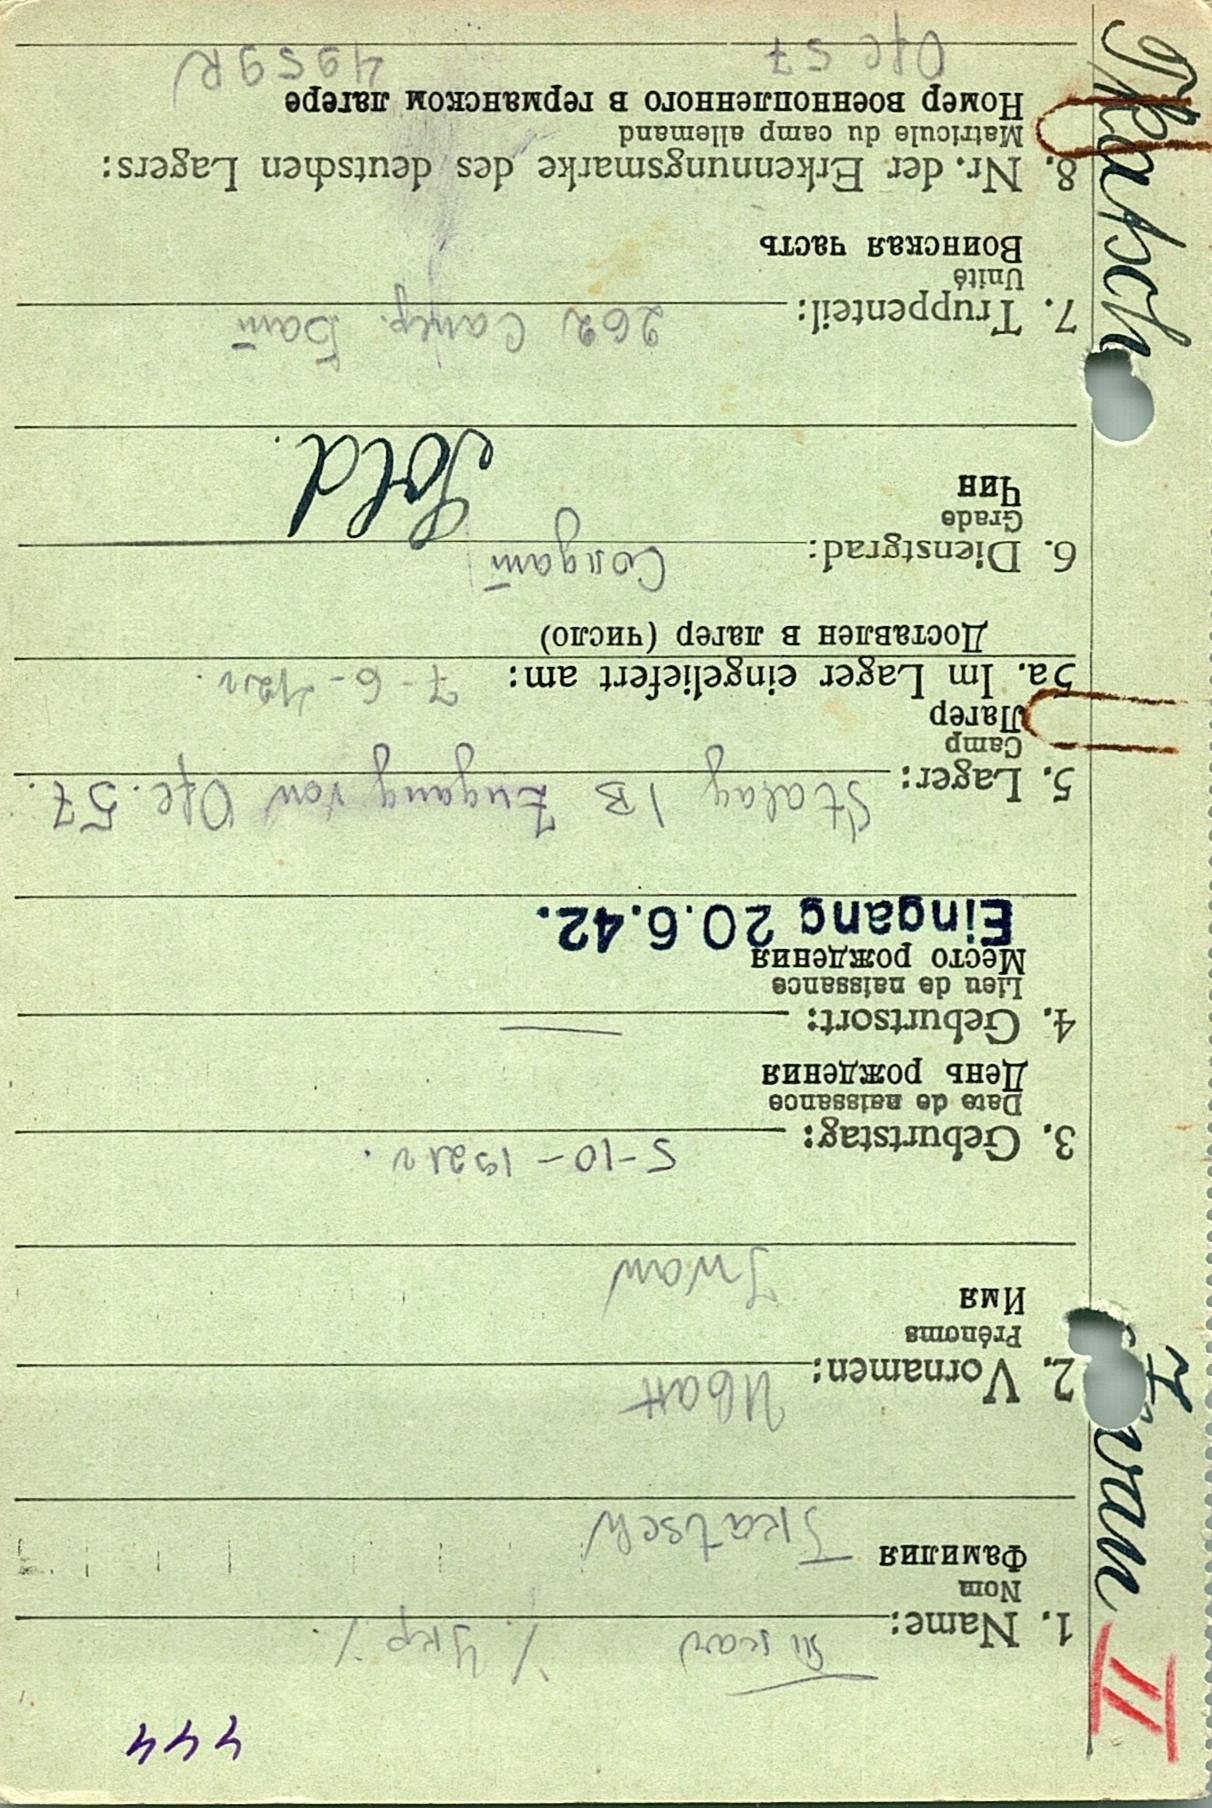 444
1. Name: Ткач / Укр /.
Nom
Фамилия Tkatsch
2. Vornamen: Иван
Prénoms
Имя
Iwan
3. Geburtstag: 5-10-1921 г.
Date de naissance
День рождения
4. Geburtsort: —
Lieu de naissance
Место рождения
Eingang 20.6.42.
5. Lager: Stalag IB Zugang von Ofl. 57.
Camp
Лагерь
5a. Im Lager eingeliefert am: 7-6-42 г.
Доставлен в лагер (число)
6. Dienstgrad: Солдат
Grade
Чин
Sold.
7. Truppenteil: 262 Сапер. Бат
Unité
Воинская часть
8. Nr. der Erkennungsmarke des deutschen Lagers:
Matricule du camp allemand
Номер военнопленного в германском лагере
Ofl 57 4959 R
II Iwan Tkatsch